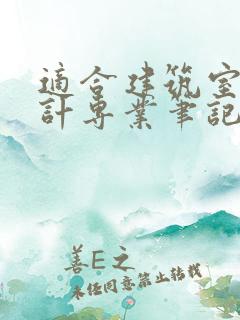 適合建筑室
計専業筆記
善E之
未任同意禁止转载